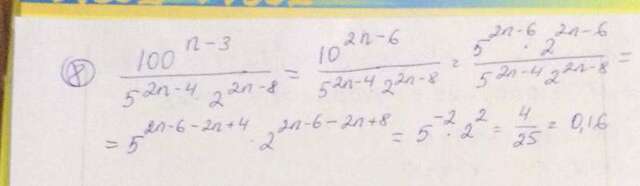 ⑧ 100^(n-3) / (5^(2n-4) 2^(2n-8)) = 10^(2n-6) / (5^(2n-4) 2^(2n-8)) = 5^(2n-6) · 2^(2n-6) / (5^(2n-4) 2^(2n-8)) =
= 5^(2n-6-2n+4) · 2^(2n-6-2n+8) = 5^(-2) · 2^2 = 4/25 = 0,16